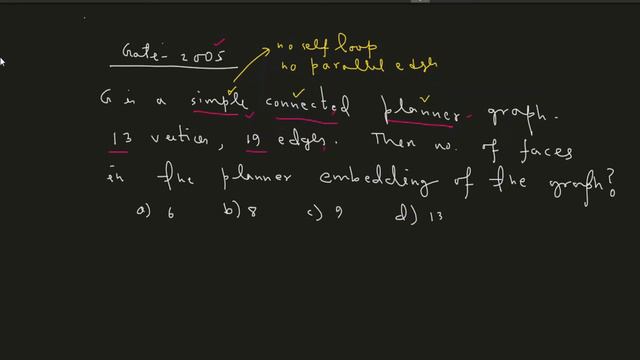 Gate- 2005
no self loop
no parallel edge
G is a simple connected planner graph.
13 vertices, 19 edges. Then no. of faces
in the planner embedding of the graph?
a) 6 b) 8 c) 9 d) 13